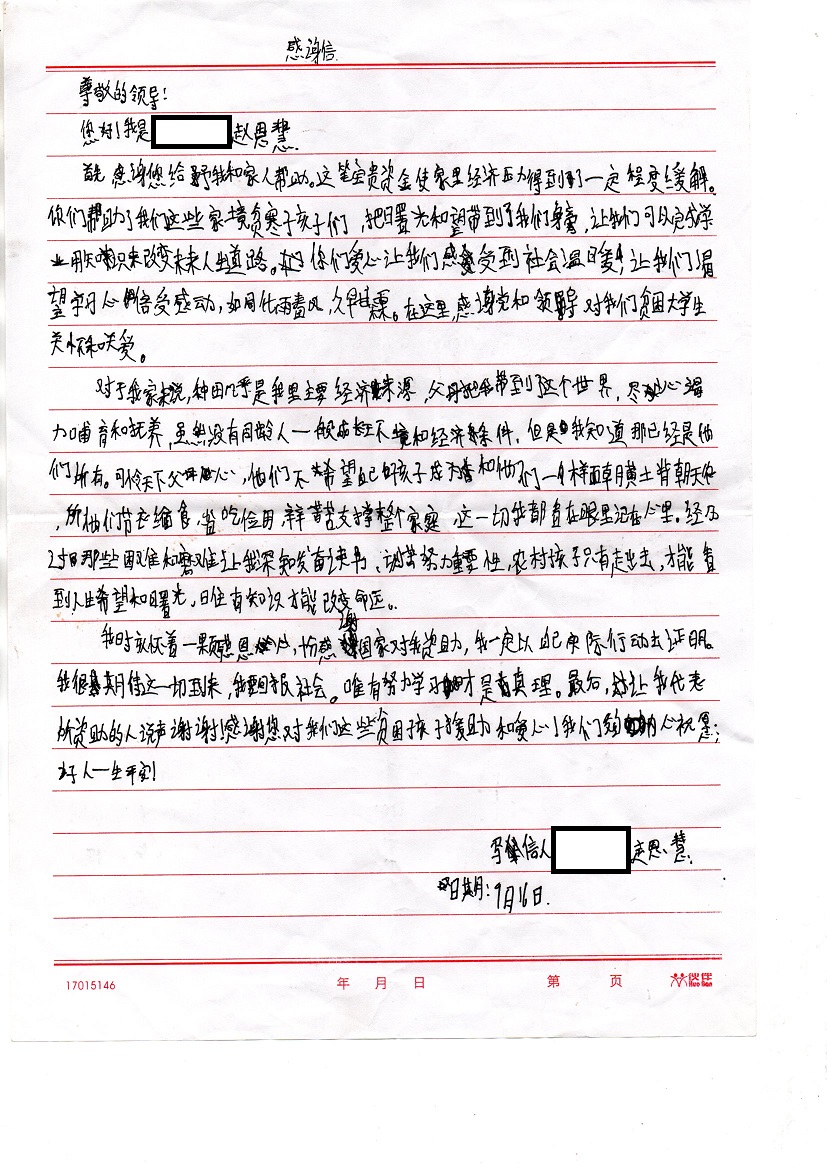 感谢信
尊敬的领导！
您好！我是 赵思慧
首先感谢您给予我和家人帮助。这笔宝贵资金使家里经济压力得到了一定程度缓解。
你们帮助了我们这些家境贫寒孩子们，把曙光和望带到了我们身旁，让我们可以完成学
业用知识来改变未来人生道路。你们爱心让我们感受到社会温暖，让我们渴
望学习心倍受感动，如同化雨春风，久旱甘霖。在这里，感谢党和领导对我们贫困大学生
关怀和关爱。
对于我家来说，种田几乎是我里主要经济来源，父母把我带到了这个世界，尽心竭
力哺育和抚养，虽然没有同龄人一般成长环境和经济条件，但是我知道那已经是他
们所有。可怜天下父母心，他们不希望自己孩子和他们一样面朝黄土背朝天
，所他们节衣缩食，省吃俭用，辛苦支撑整个家庭，这一切我都看在眼里记在心里。经历
那些困难和磨难让我深知发奋读书、努力重要性，农村孩子只有走出去，才能看
到人生希望和曙光，有知识才能改变命运。
我时刻怀着一颗感恩心，十份感谢国家对我资助，我一定以自己实际行动去证明。
我很期待这一切到来，我要回报社会。唯有努力学习才是真理。最后，让我代表
所资助的人说声谢谢！感谢您对我们这些贫困孩子援助和爱心！我们衷心祝愿：
好人一生平安！
写信人 赵思慧
日期：9月16日.
17015146 年 月 日 第 页 伙伴